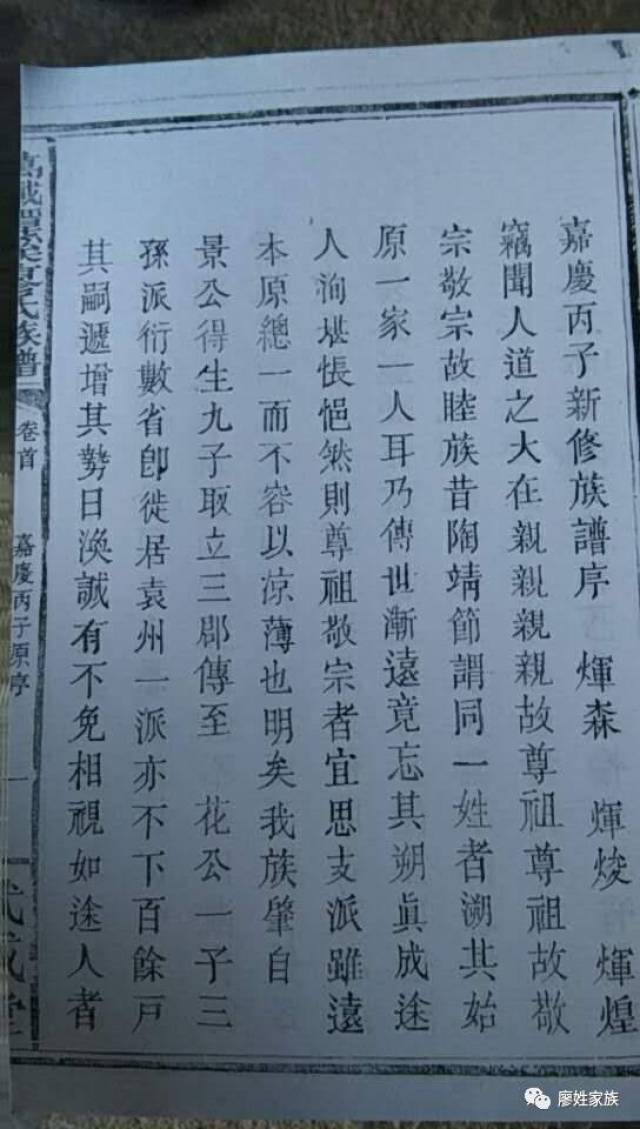 嘉慶丙子新修族譜序 煇森 煇焌 煇煌
竊聞人道之大在親親親親故尊祖尊祖故敬
宗敬宗故睦族昔陶靖節謂同一姓者溯其始
原一家一人耳乃傳世漸遠竟忘其朔眞成途
人洵堪悵悒然則尊祖敬宗者宜思支派雖遠
本原總一而不容以涼薄也明矣我族肇自
景公得生九子取立三郡傳至 花公一子三
孫派衍數省卽徙居袁州一派亦不下百餘戸
其嗣遞增其勢日渙誠有不免相視如途人者
氏族譜 卷首 嘉慶丙子原序 一 武威堂
廖姓家族